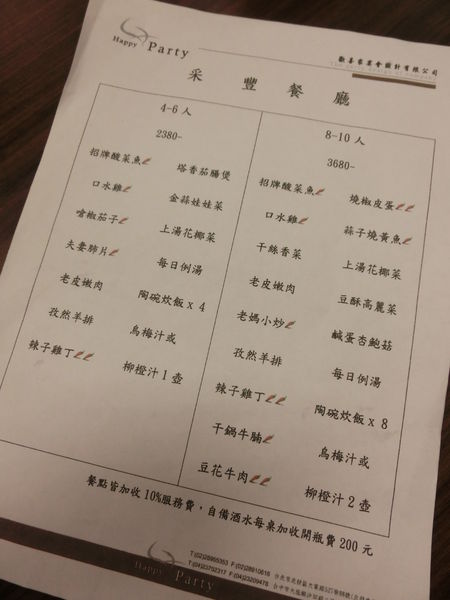 Happy Party
歡喜宴宴會設計有限公司
采豐餐廳
4-6 人
2380-
招牌酸菜魚
口水雞
嗆椒茄子
夫妻肺片
老皮嫩肉
孜然羊排
辣子雞丁
塔香茄腸煲
金蒜娃娃菜
上湯花椰菜
每日例湯
陶碗炊飯 x 4
烏梅汁或
柳橙汁 1 壺
8-10 人
3680-
招牌酸菜魚
口水雞
干絲香菜
老皮嫩肉
老媽小炒
孜然羊排
辣子雞丁
干鍋牛腩
豆花牛肉
燒椒皮蛋
蒜子燒黃魚
上湯花椰菜
豆酥高麗菜
鹹蛋杏鮑菇
每日例湯
陶碗炊飯 x 8
烏梅汁或
柳橙汁 2 壺
餐點皆加收 10%服務費，自備酒水每桌加收開瓶費 200 元
Happy Party